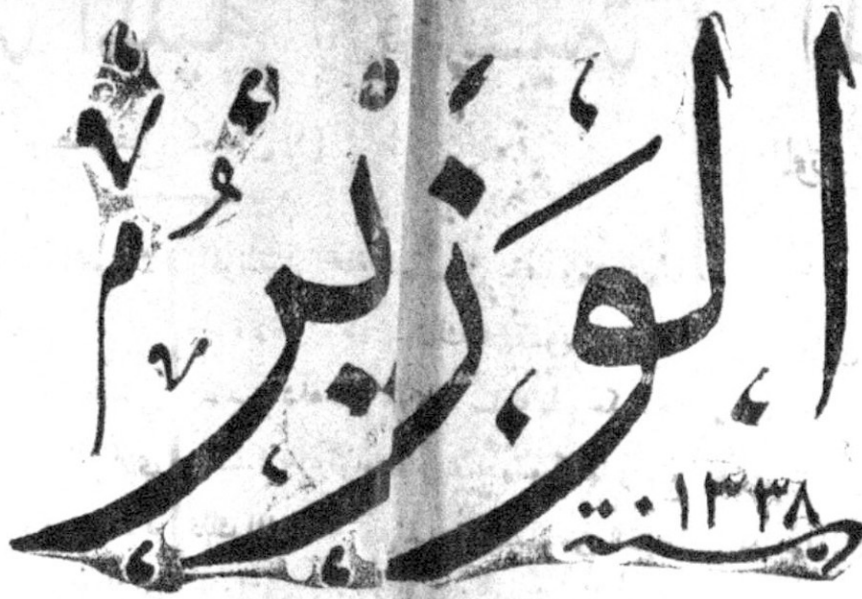 الوَزيرُ
سنة ١٣٣٨